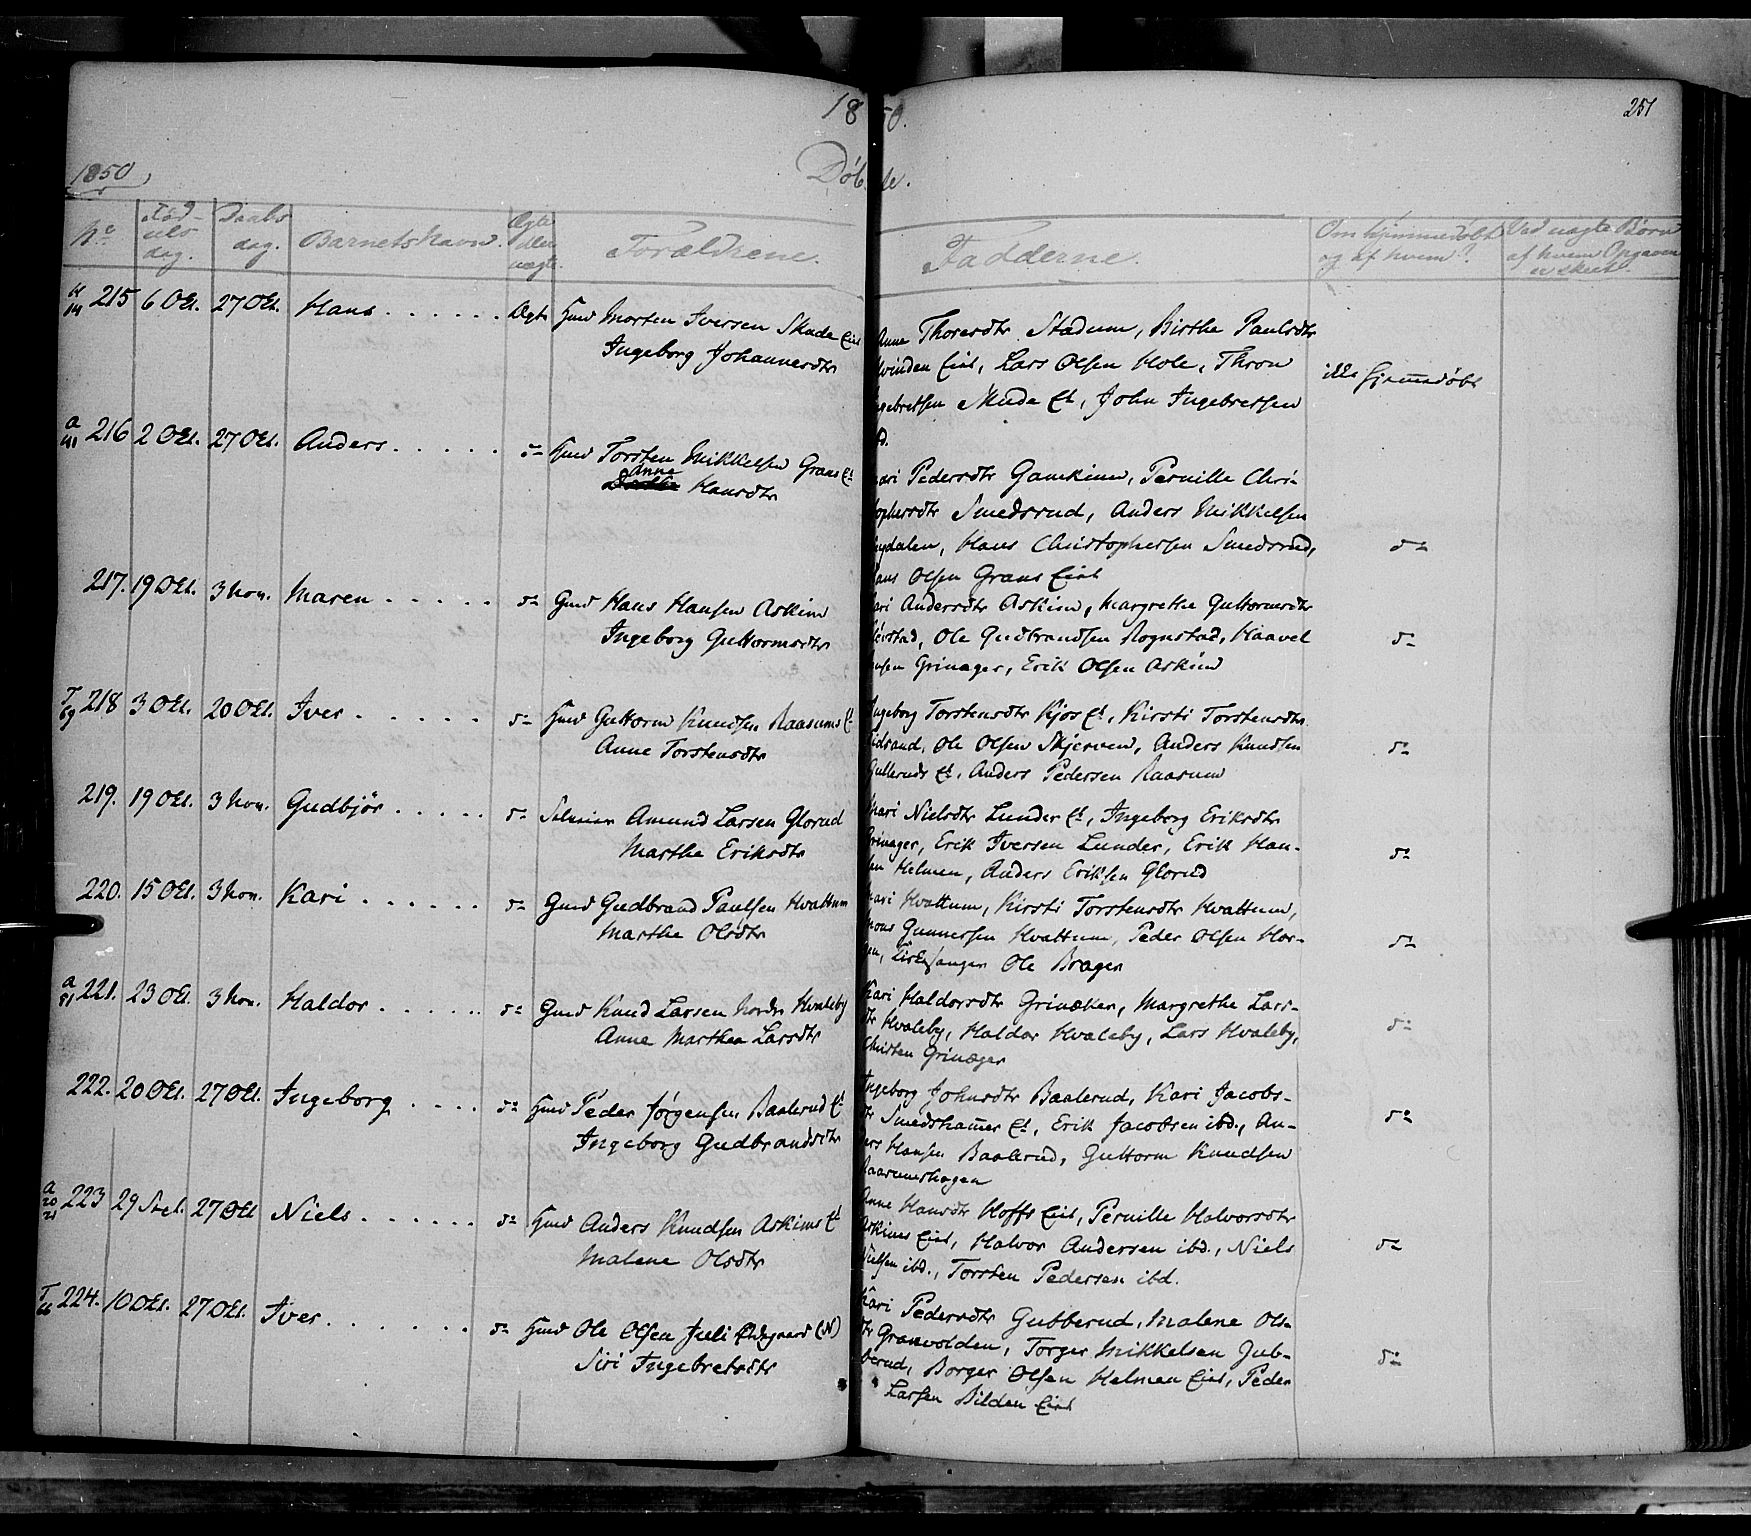 1850.
251
1850,
Døbte.
No
Fødselsdag.
Daabsdag.
Barnets Navn.
Ægte eller uægte.
Forældrene.
Fadderne.
Om hjemmedøbt og af hvem?
Ved uægte Børn af hvem Opgaven er skeet.
215 6 Oct. 27 Oct. Hans . . . . . . Ægte Hmd Morten Iversen Skude Eiet
Ingeborg Johannesdtr
Anne Thoresdtr Stadum, Birthe Paulsdtr
Hvinden Eiet, Lars Olsen Hole, Thron
Ingebretsen Skude Et, John Ingebretsen
ikke hjemmedøbt
216 2 Oct. 27 Oct. Anders . . . . . . do Hmd Torsten Mikkelsen Grans Et
Anne Hansdtr
Kari Pedersdtr Gamkinn, Pernille Chri-
stophersdtr Smedsrud, Anders Mikkelsen
Hans Christophersen Smedsrud, do
Hans Olsen Grans Eiet
217. 19 Oct. 3 Nov. Maren . . . . . do Gmd Hans Hansen Askim
Ingeborg Guttormsdtr
Kari Andersdtr Askim, Margrethe Guttormsdtr
Ole Gudbrandsen Rognstad, Haavel do
Hansen Grinager, Erik Olsen Askim
218 3 Oct. 20 Oct. Iver . . . . . do Hmd Guttorm Knudsen Raasums Et
Anne Torstensdtr
Ingeborg Torstensdtr Kjos Et, Kirsti Torstensdtr
Ole Olsen Skjerven, Anders Knudsen do
Gulleruds Et. Anders Pedersen Raasum
219. 19 Oct. 3 Nov. Gudbjør . . . . . do Amund Larsen Glorud
Marthe Eriksdtr
Mari Nielsdtr Lunder Et, Ingeborg Eriksdtr
Grinager, Erik Iversen Lunder, Erik Han-
sen Helmen, Anders Eriksen Glorud do
220. 15 Oct. 3 Nov. Kari . . . . . . do Gmd Gudbrand Paulsen Hvattum
Marthe Olsdtr
Mari Hvattum, Kirsti Torstensdtr Hvattum,
Mons Gunnersen Hvattum, Peder Olsen Hor-
gen, Kirkesanger Ole Brager do
221. 23 Oct. 3 Nov. Haldor . . . . . . do Gmd Knud Larsen Nordre Hvaleby
Anne Marthea Larsdtr
Kari Haldorsdtr Grinaker, Margrethe Lars-
dtr Hvaleby, Haldor Hvaleby, Lars Hvaleby, do
Christen Grinager
222. 20 Oct. 27 Oct. Ingeborg . . . . do Hmd Peder Jørgensen Baalerud Et
Ingeborg Gudbrandsdtr
Ingeborg Johnsdtr Baalerud, Kari Jacobs-
dtr Smedshammer Et, Erik Jacobsen ibd., An- do
ders Hansen Baalerud, Guttorm Knudsen
Raasumshagen
223 29 Sept. 27 Oct Niels . . . . . . do Hmd Anders Knudsen Askims Et
Malene Olsdtr
Anne Hansdtr Hoffs Eiet, Pernille Halvorsdtr
Askims Eiet, Halvor Andersen ibd., Niels do
Nielsen ibd., Torsten Pedersen ibd.
224. 10 Oct. 27 Oct. Iver . . . . . . do Hmd Ole Olsen Juli Ødegaard (N)
Siri Ingebretsdtr
Kari Pedersdtr Gubberud, Malene Ols-
dtr Granvolden, Torger Mikkelsen Gub-
berud, Borger Olsen Helmen Eiet, Peder do
Larsen Bilden Eiet